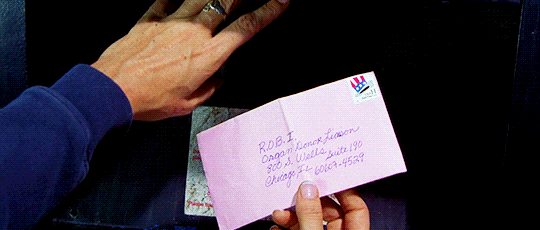 R.O.B.I.
Organ Donor Liaison
800 S. Wells
Suite 190
Chicago IL 60607-4529